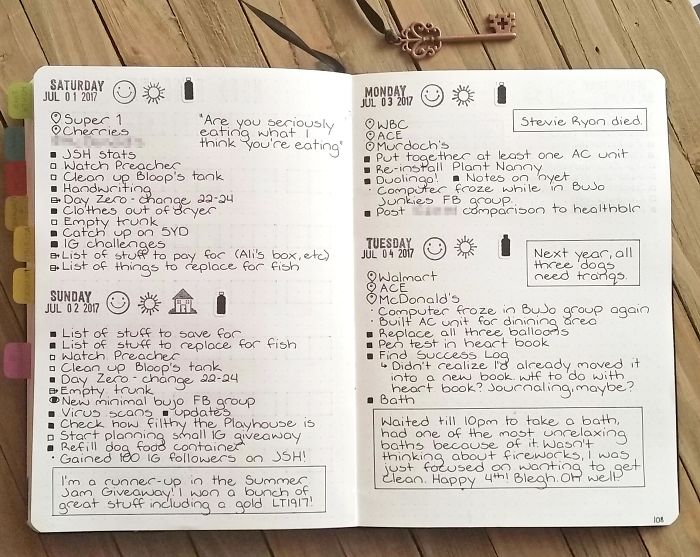 SATURDAY
JUL 01 2017
Super 1
Cherries
"Are you seriously
eating what I
think you're eating"
JSH stats
Watch Preacher
Clean up Bloop's tank
Handwriting
Day Zero - change 22-24
Clothes out of dryer
Empty trunk
Catch up on SYD
IG challenges
List of stuff to pay for (Ali's box, etc)
List of things to replace for fish
SUNDAY
JUL 02 2017
List of stuff to save for
List of stuff to replace for fish
Watch Preacher
Clean up Bloop's tank
Day Zero - change 22-24
Empty trunk
New minimal bujo FB group
Virus scans updates
Check how filthy the Playhouse is
Start planning small IG giveaway
Refill dog food container
Gained 100 IG followers on JSH!
I'm a runner-up in the Summer
Jam Giveaway! I won a bunch of
great stuff including a gold LT1917!
MONDAY
JUL 03 2017
Stevie Ryan died.
WBC
ACE
Murdoch's
Put together at least one AC unit
Re-install Plant Nanny
Duolingo! Notes on nyet
Computer froze while in BuJo
Junkies FB group.
Post comparison to healthblr
TUESDAY
JUL 04 2017
Next year, all
three dogs
need tranqs.
Walmart
ACE
McDonald's
Computer froze in BuJo group again
Built AC unit for dinining area
Replace all three balloons
Pen test in heart book
Find Success Log
↳ Didn't realize I'd already moved it
into a new book. wtf to do with
heart book? Journaling, maybe?
Bath
Waited till 10pm to take a bath,
had one of the most unrelaxing
baths because of it. Wasn't
thinking about fireworks, I was
just focused on wanting to get
clean. Happy 4th! Blegh. Oh well!
108